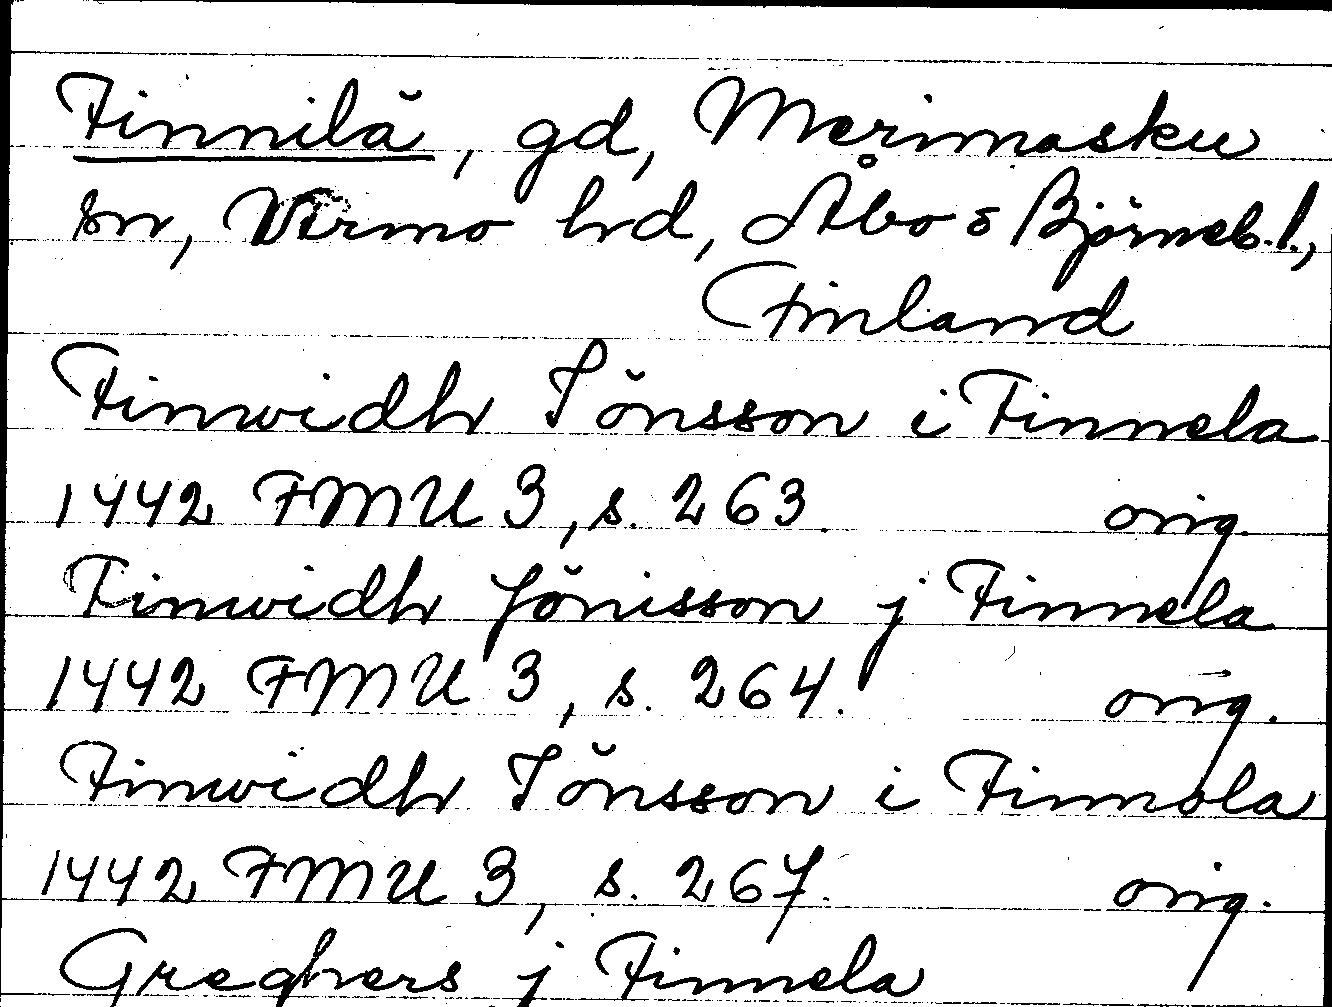 Finnilä, gd, Merimasku
sn, Virmo hd, Åbo o Björneb. l.,
Finland
Finwidh Jönsson i Finnela
1442 FMU 3, s. 263. orig.
Finwidh Jönisson j Finnela
1442 FMU 3, s. 264. orig.
Finwidh Jönsson i Finnola
1442 FMU 3, s. 267. orig.
Greghers j Finnela